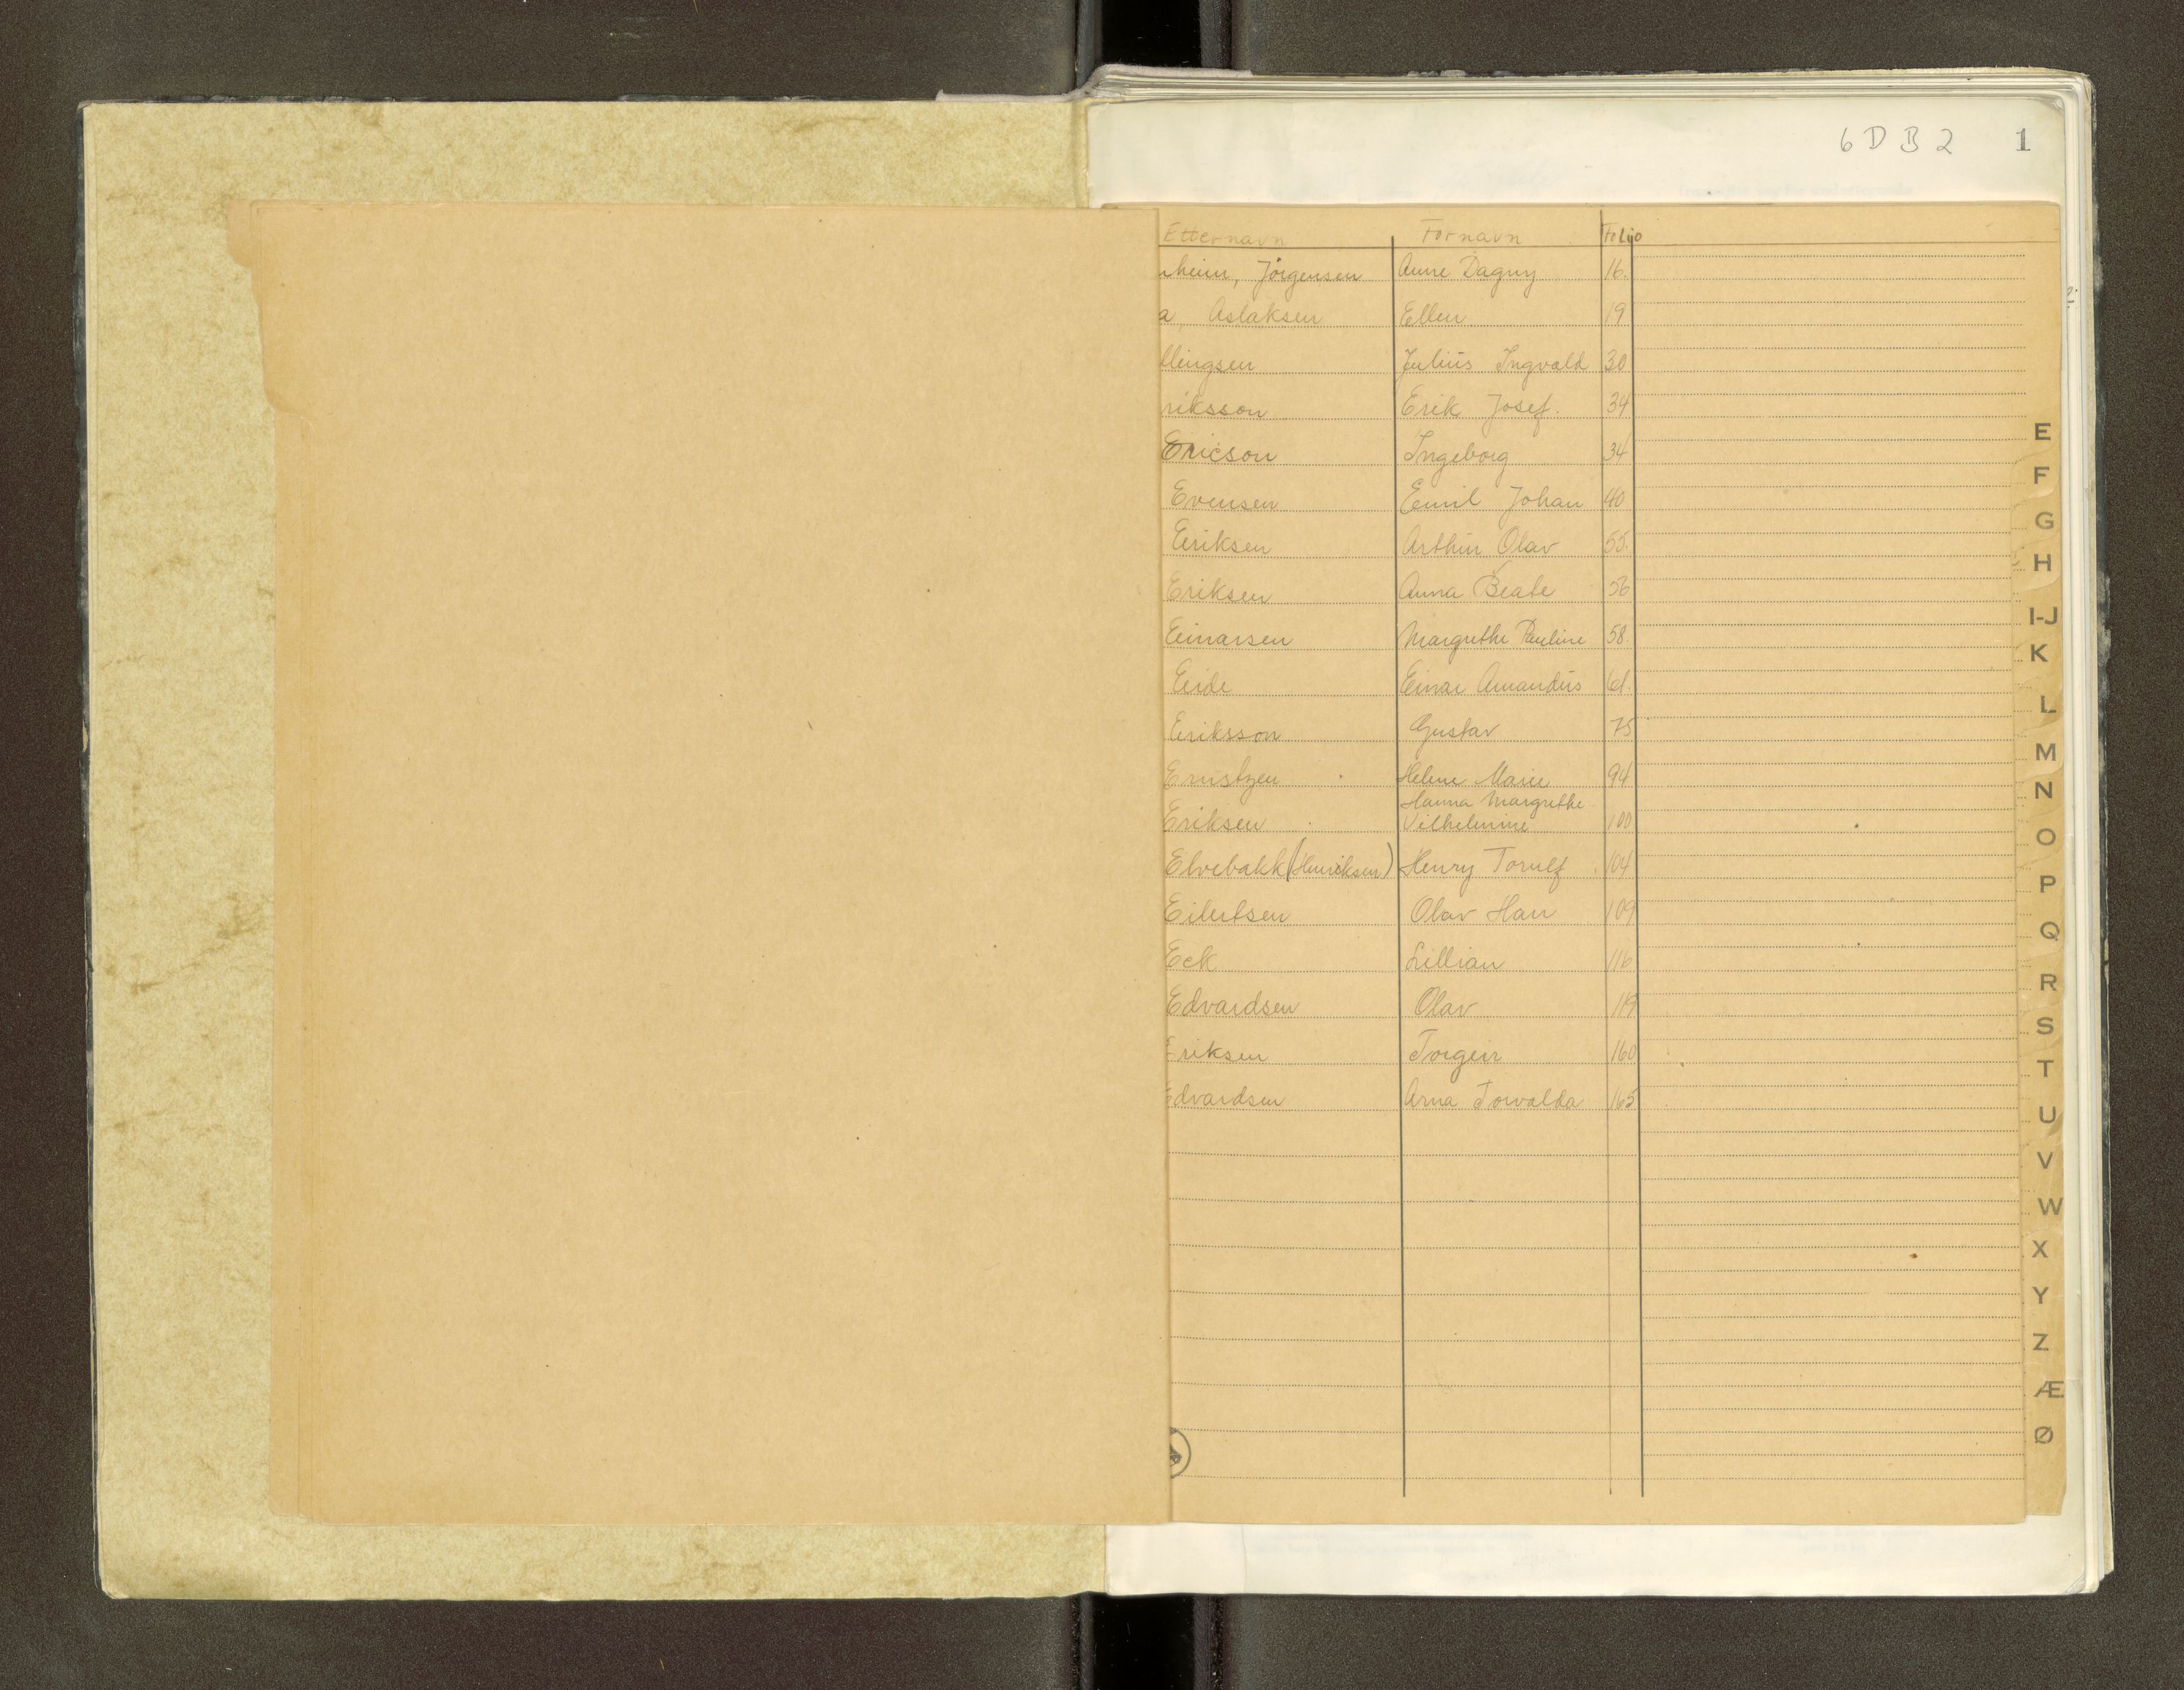 6 D B 2 1
Etternavn Fornavn Folio
nheim, Jörgensen Anne Dagny 16.
a Aslaksen Ellen 19
llingsen Julius Ingvald 30
riksson Erik Josef. 34
Ericson Ingeborg 34
Evensen Emil Johan 40
Eriksen Arthur Olav 55.
Eriksen Anna Beate 56
Einarsen Margrethe Pauline 58.
Eide Einar Amandus 61.
Eriksson Gustav 75
Ernstzen Helene Marie 94
Hanna Margrethe
Eriksen Vilhelmine 100
Elvebakk (Henriksen) Henry Torulf 104
Eilertsen Olav Han 109
Eck Lillian 116
Edvardsen Olav 119
Eriksen Torgeir 160
Edvardsen Arna Torvalda 165
E
F
G
H
I-J
K
L
M
N
O
P
Q
R
S
T
U
V
W
X
Y
Z
Æ
Ø